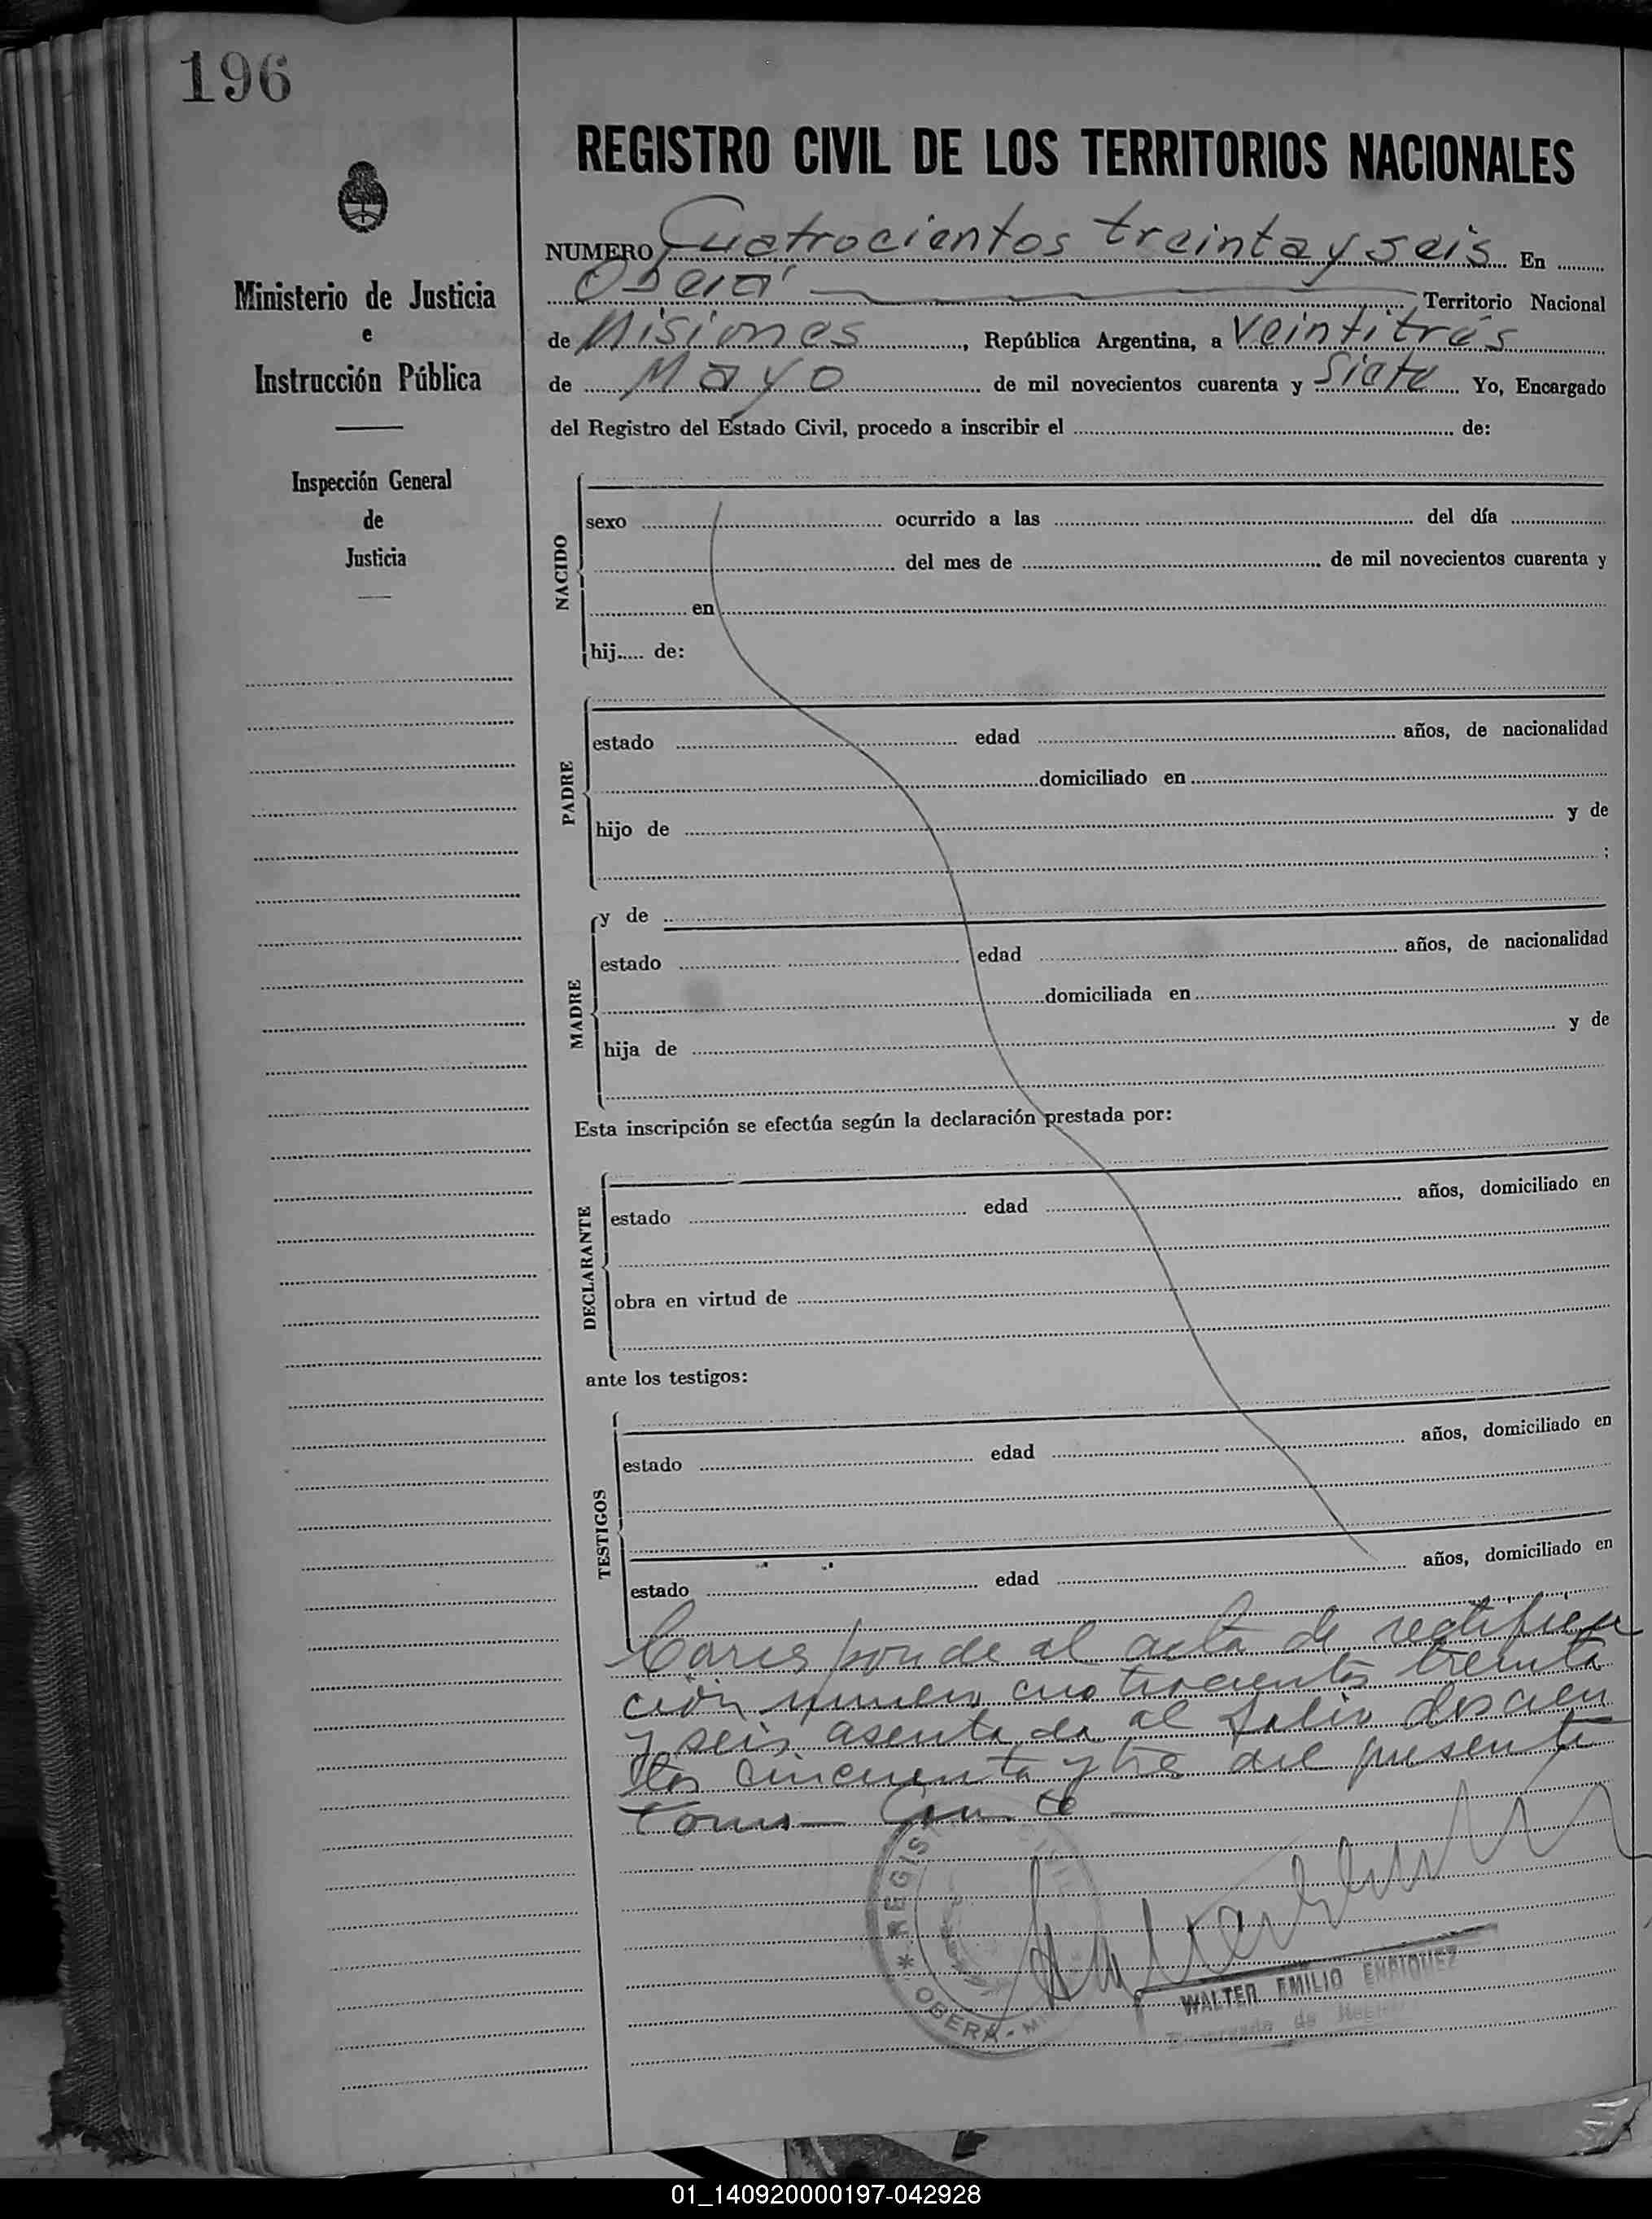 196
REGISTRO CIVIL DE LOS TERRITORIOS NACIONALES
Ministerio de Justicia
e
Instrucción Pública
Inspección General
de
Justicia
NUMERO Cuatrocientos treinta y seis En
Oberá Territorio Nacional
de Misiones, República Argentina, a veintitrés
de Mayo de mil novecientos cuarenta y Siete Yo, Encargado
del Registro del Estado Civil, procedo a inscribir el de:
NACIDO
sexo ocurrido a las del día
del mes de de mil novecientos cuarenta y
en
hij..... de:
PADRE
estado edad años, de nacionalidad
domiciliado en
hijo de y de
;
MADRE
y de
estado edad años, de nacionalidad
domiciliada en
hija de y de
Esta inscripción se efectúa según la declaración prestada por:
DECLARANTE
estado edad años, domiciliado en
obra en virtud de
ante los testigos:
TESTIGOS
estado edad años, domiciliado en
estado edad años, domiciliado en
Corresponde al acta de rectifica
ción numero cuatrocientos treinta
y seis asentada al folio doscien
tos cincuenta y tres del presente
tomo
* REGIS
OBERÁ - MI
WALTER EMILIO ENRIQUEZ
Encargado de
01_140920000197-042928